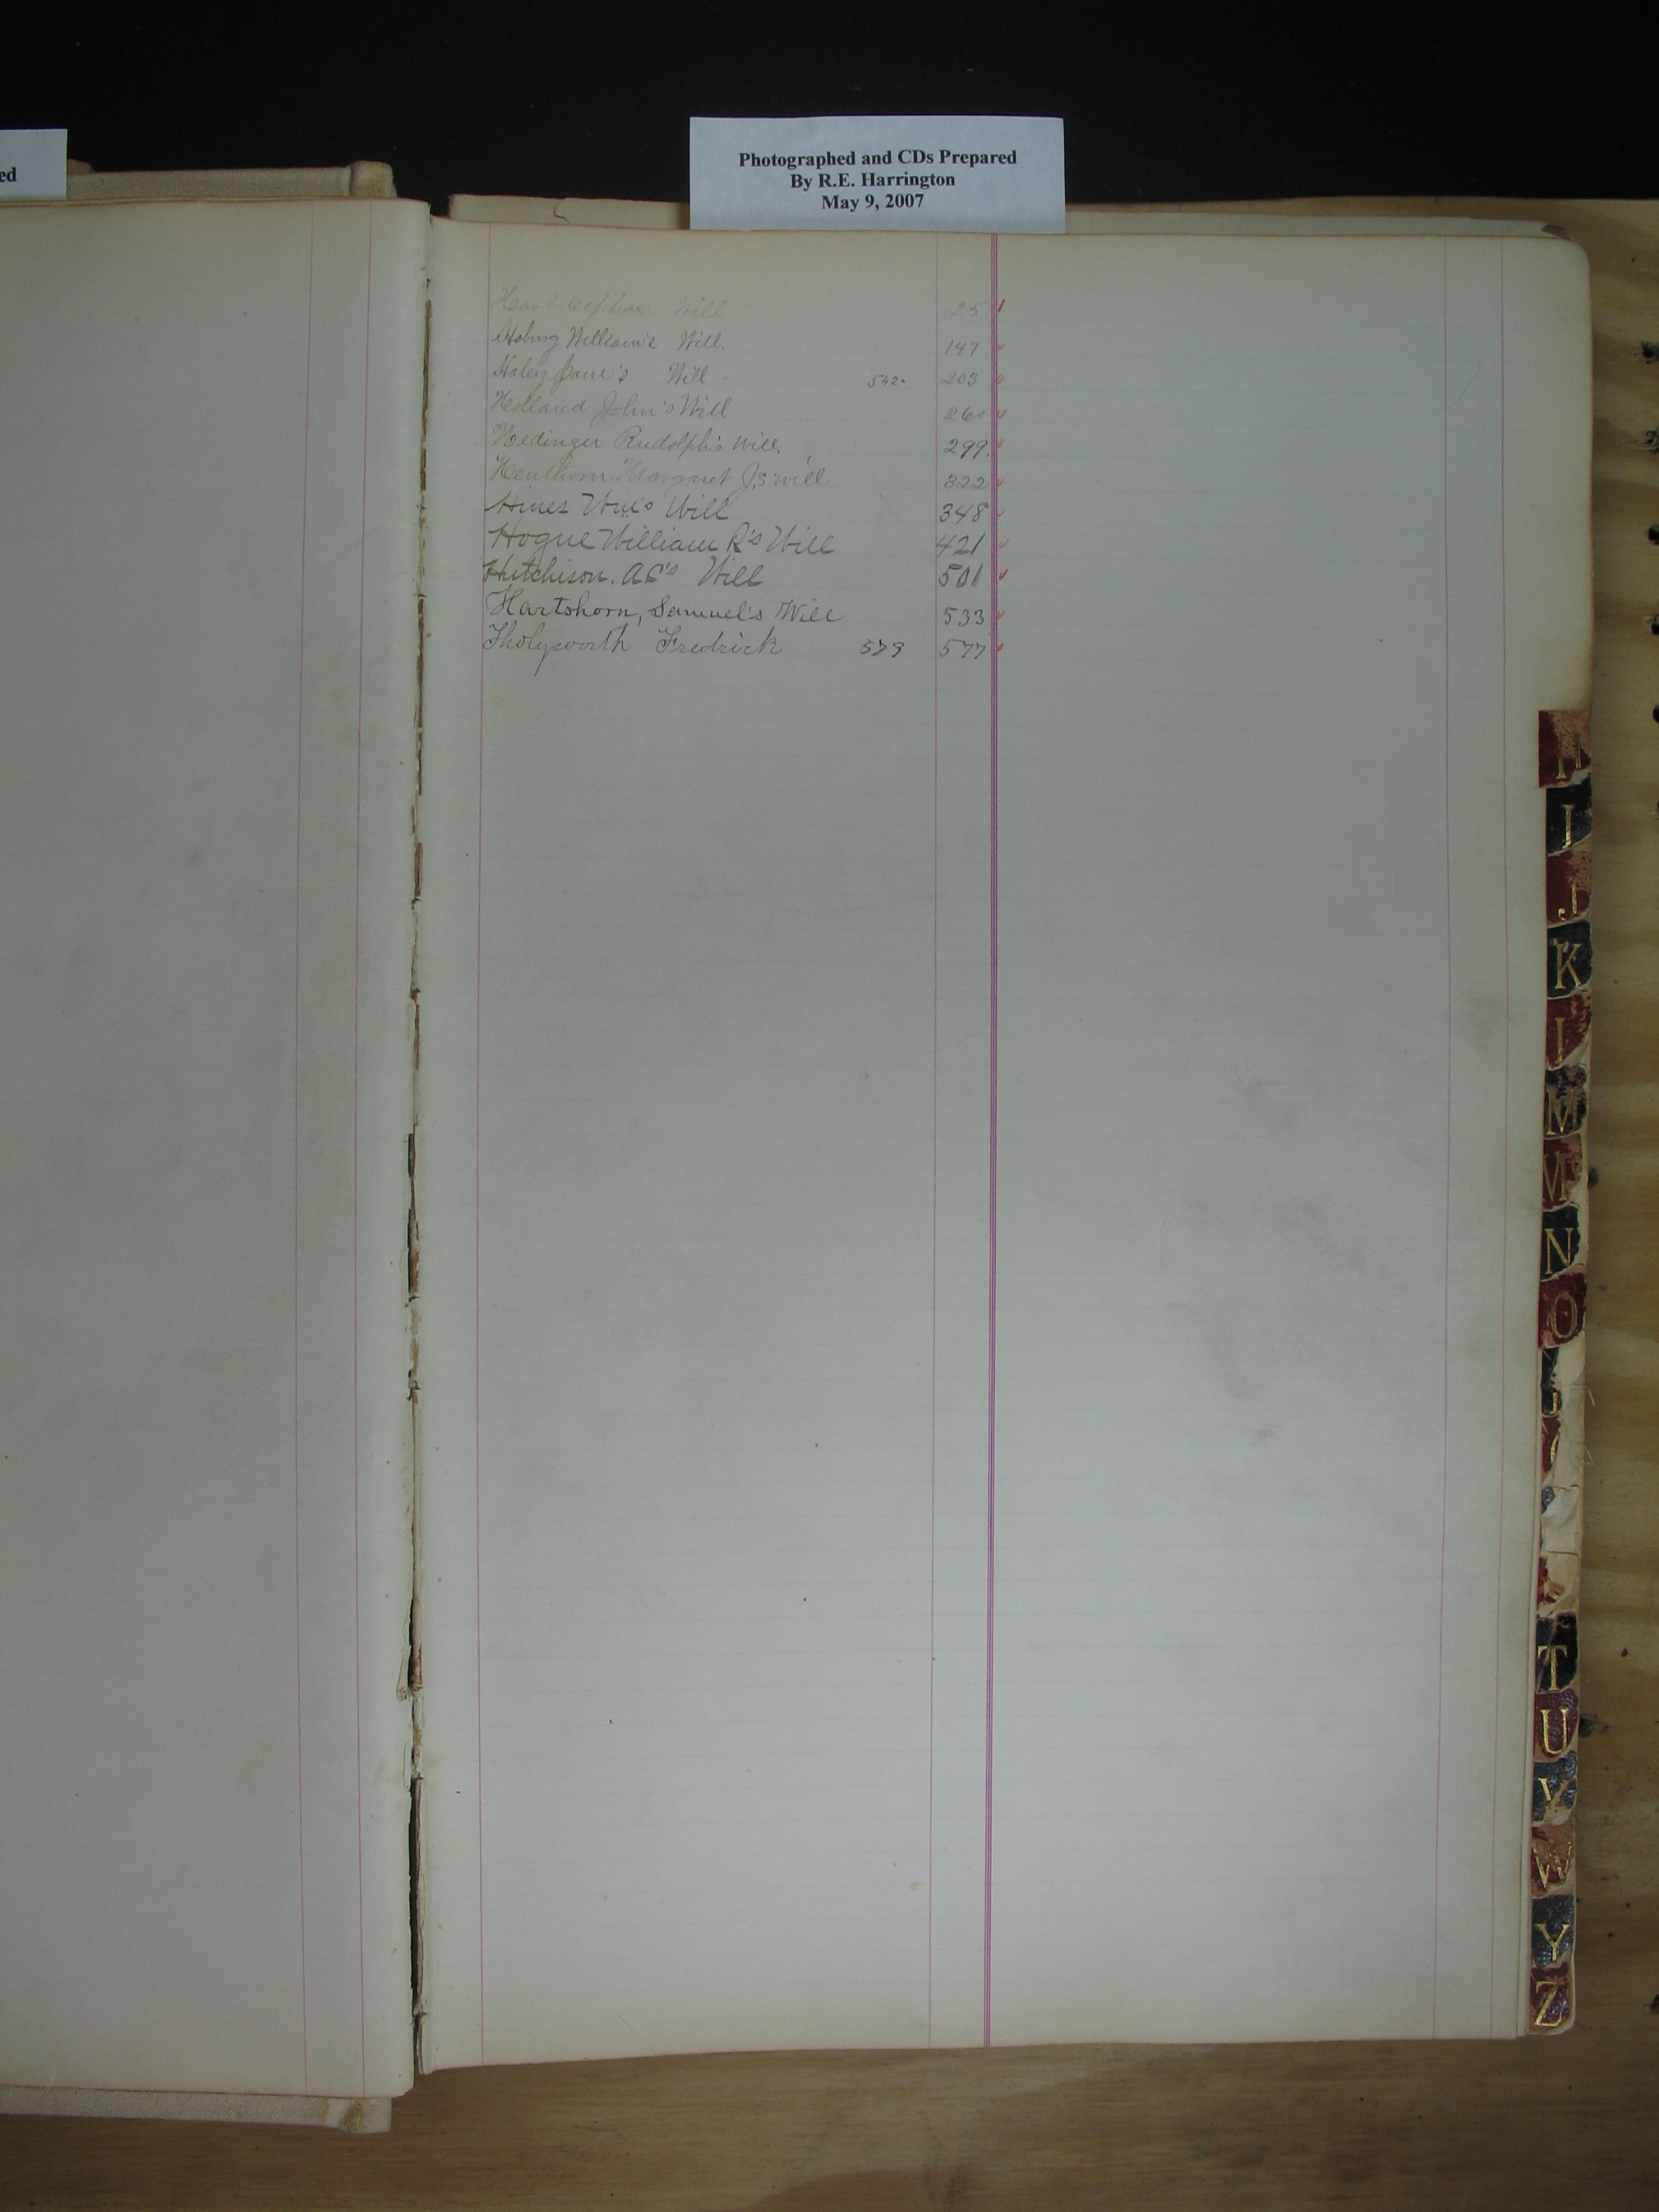 ed
Photographed and CDs Prepared
By R.E. Harrington
May 9, 2007
Hart Cephas Will 25
Hoburg William's Will. 147
Haley Jane's Will 542. 203
Holland John's Will 260
Hedinger Rudolph's Will. 299.
Henthorn Margaret J's will 322
Hines Wm's Will 348
Hogue William R's Will 421
Hutchison. A C's Will 501
Hartshorn, Samuel's Will 533
Fredrick 579 577
H
I
J
K
L
M
M
N
O
T
U
V
W
Y
Z